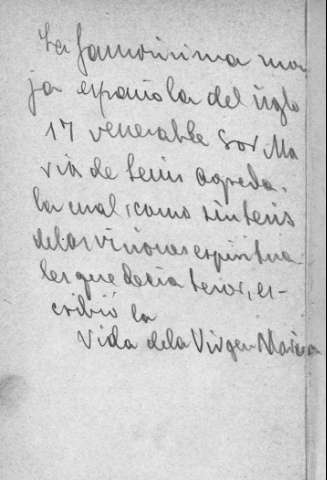 La famosisima mon
ja española del siglo
17 venerable Sor Ma
ria de Jesus agreda.
la cual, como sintesis
de las visiones espiritua
les que decia tener, es-
cribió la
Vida de la Virgen Maria